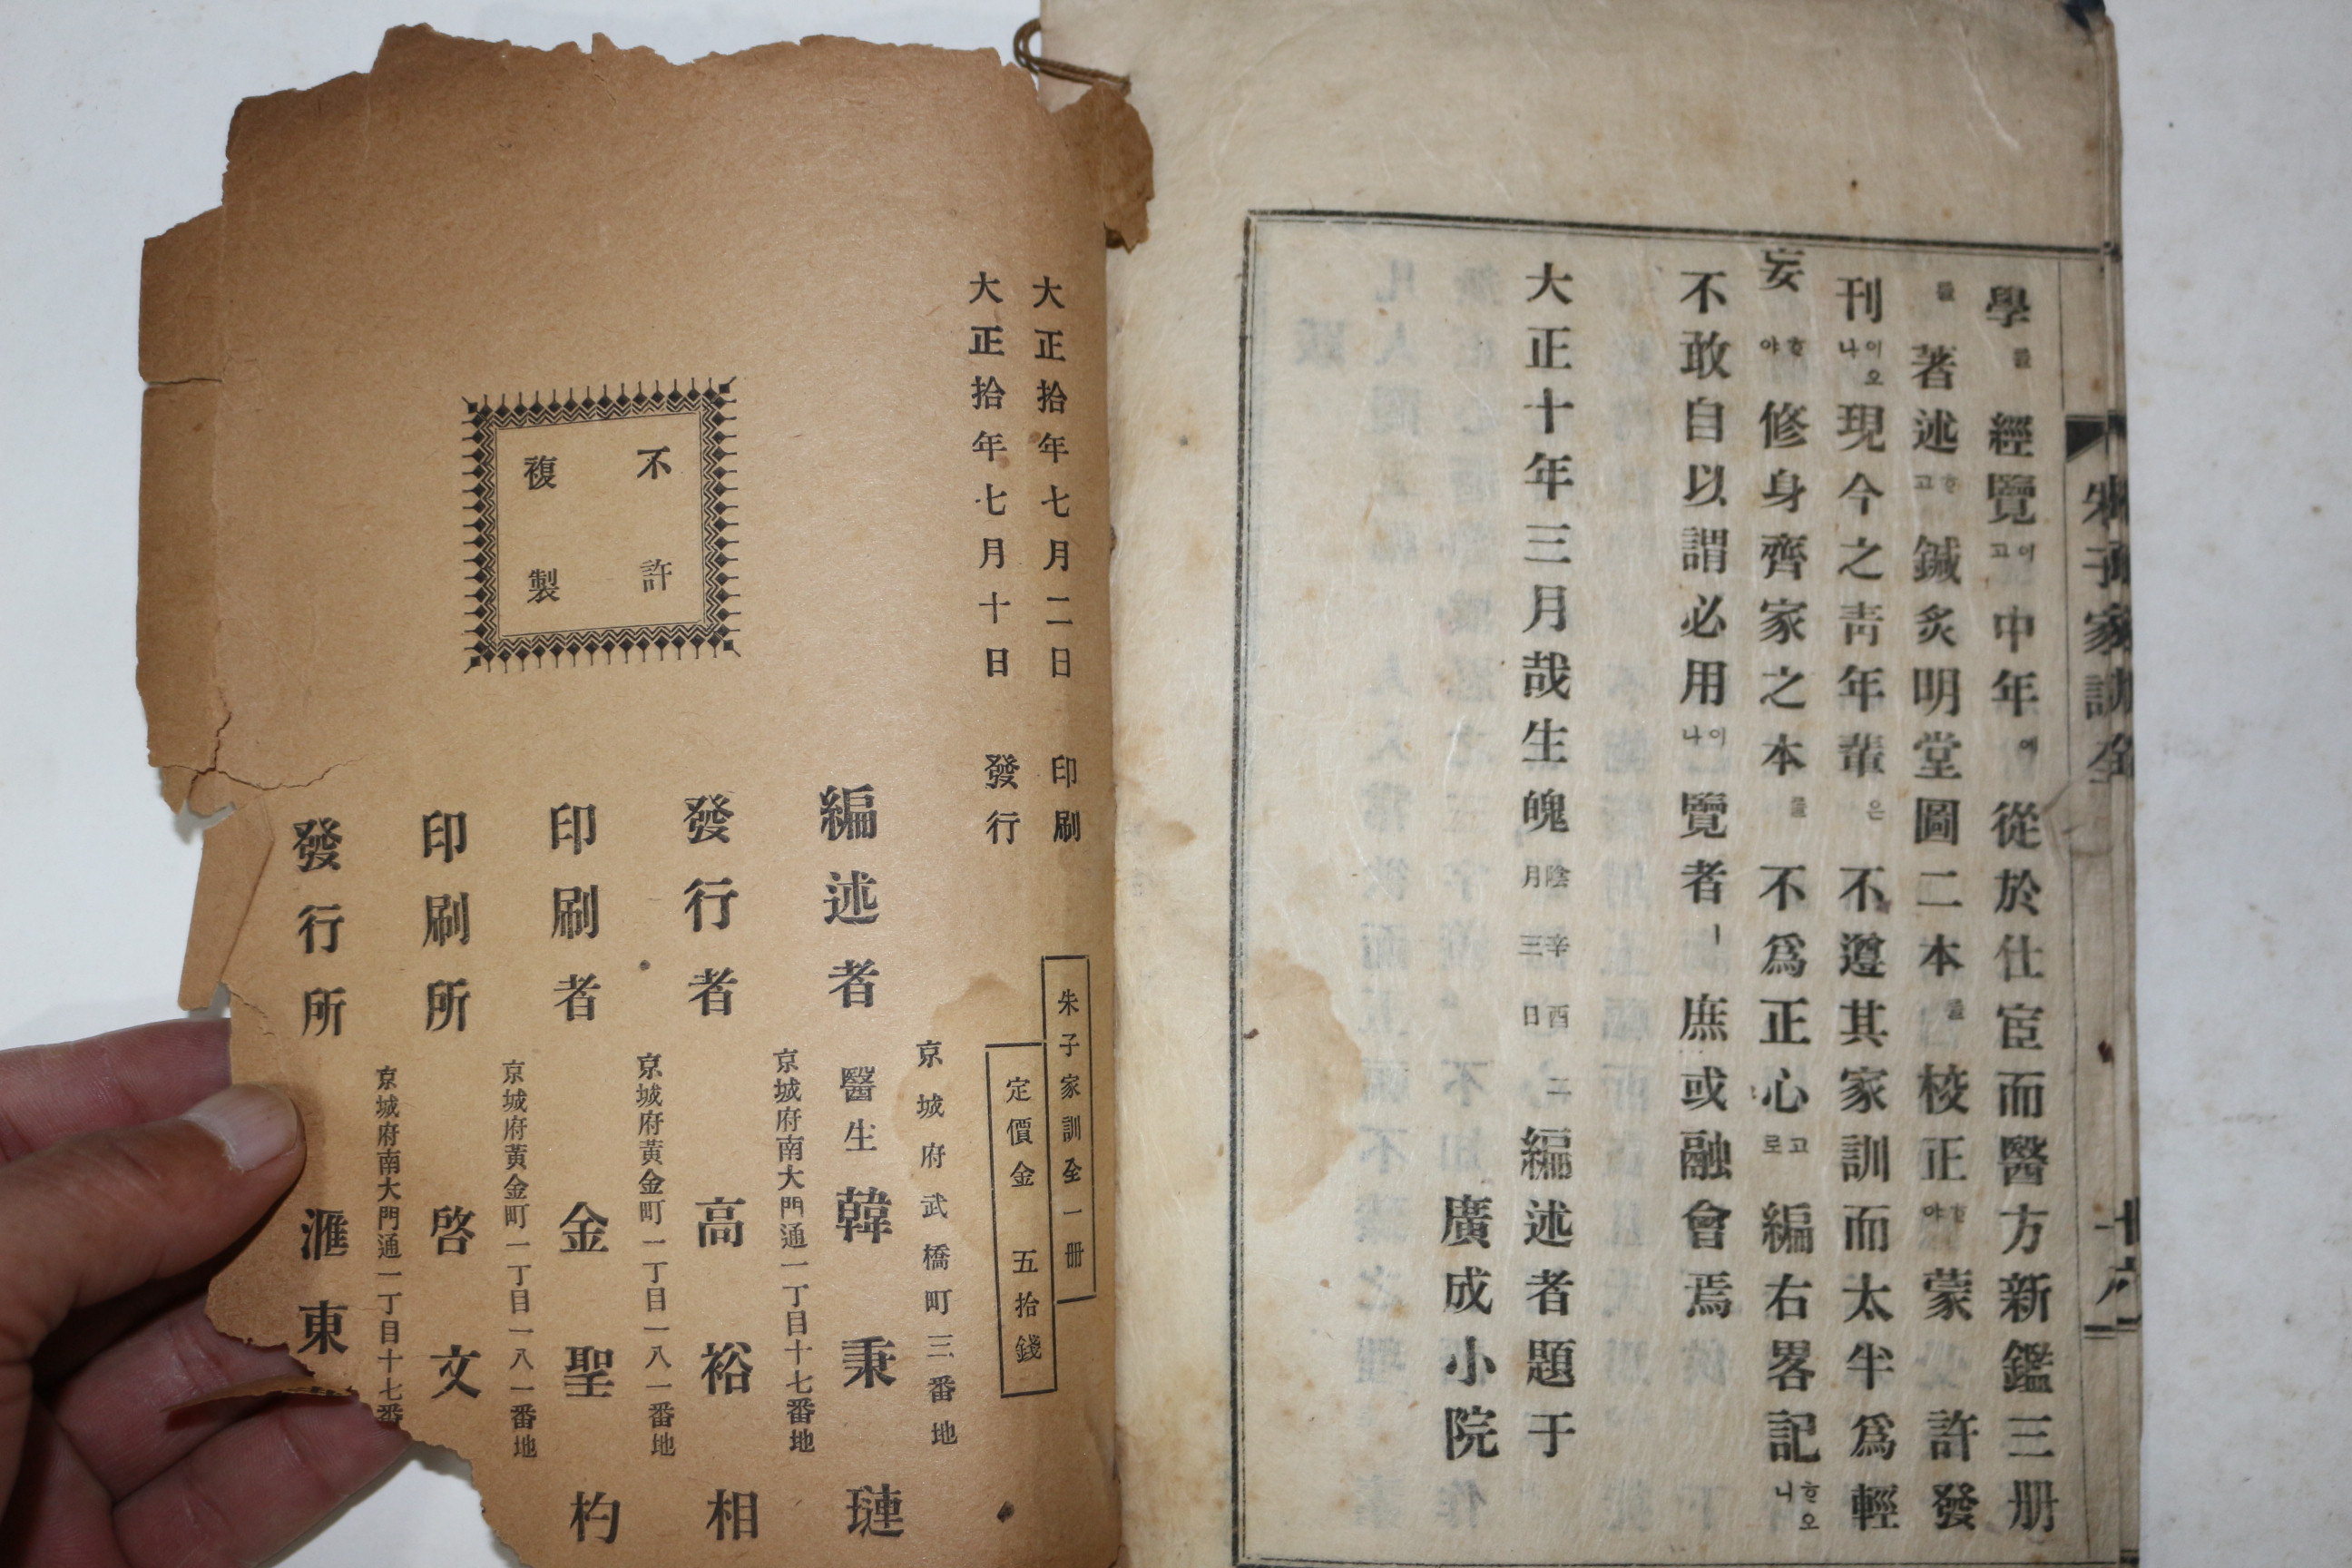 朱子家訓全
學를 經覽이고 中年에 從於仕宦而醫方新鑑三册
를 著述ᄒᆞ고 鍼灸明堂圖二本를 校正ᄒᆞ야 蒙 許發
刊이오나 現今之靑年輩은 不遵其家訓而太半爲輕
妄ᄒᆞ야 修身齊家之本를 不爲正心고로 編右畧記ᄒᆞ오니
不敢自以謂必用이나 覽者ㅣ 庶或融會焉
大正十年三月哉生魄陰辛酉二月三日編述者題于
廣成小院
大正拾年七月二日 印刷
大正拾年七月十日 發行
不許
複製
朱子家訓全一册
定價金 五拾錢
京城府武橋町三番地
編述者 醫生 韓秉璉
京城府南大門通一丁目十七番地
發行者 高裕相
京城府黃金町一丁目一八一番地
印刷者 金聖杓
京城府黃金町一丁目一八一番地
印刷所 啓文
京城府南大門通一丁目十七番
發行所 滙東